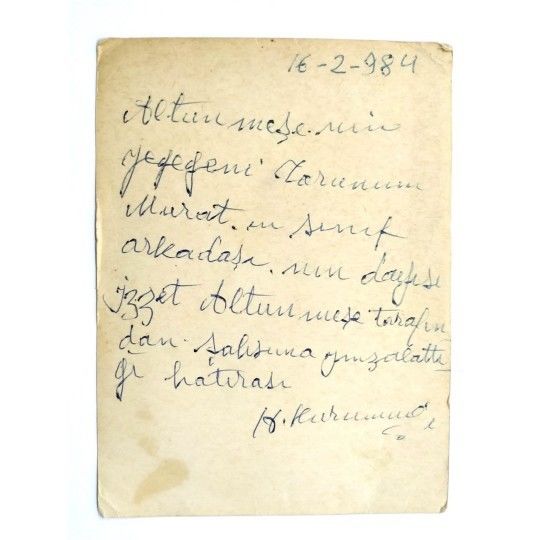 16-2-984
Altunmeşe.nin
yeğeğeni Torunum
Murat.ın sınıf
arkadaşı.nın dayısı
İzzet Altunmeşe tarafın
dan şahsıma ymzalattı
ği hatırası
H.